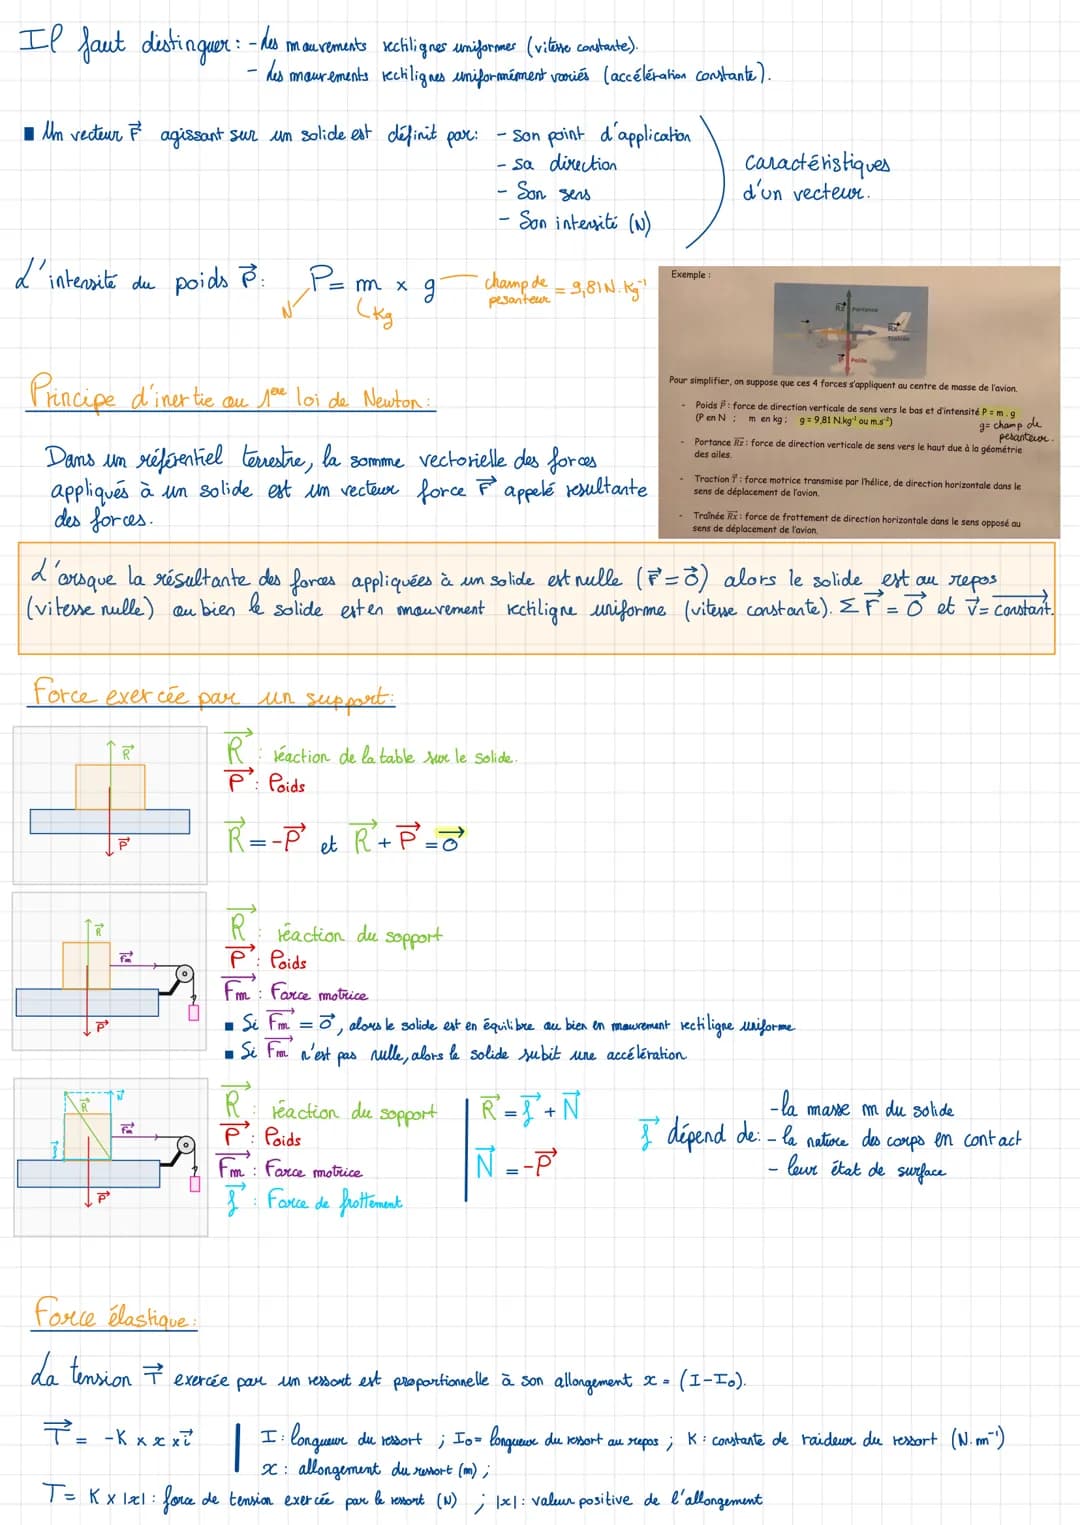 Il faut distinguer : - des mouvements rectilignes uniformes (vitesse constante).
- des mouvements rectilignes uniformément variés (accélération constante).
■ Un vecteur F agissant sur un solide est définit par : - son point d'application
- sa direction
- Son sens
- Son intensité (N)
caractéristiques
d'un vecteur.
L'intensité du poids P : P = m x g
N
Kg
champ de pesanteur = 9,81 N.Kg⁻¹
Exemple :
Rz Portance
Rx
Traînée
P Poids
Pour simplifier, on suppose que ces 4 forces s'appliquent au centre de masse de l'avion.
- Poids P : force de direction verticale de sens vers le bas et d'intensité P = m . g
(P en N ; m en kg ; g = 9,81 N.kg⁻¹ ou m.s⁻²)
g = champ de pesanteur.
- Portance Rz : force de direction verticale de sens vers le haut due à la géométrie
des ailes.
- Traction T : force motrice transmise par l'hélice, de direction horizontale dans le
sens de déplacement de l'avion.
- Traînée Rx : force de frottement de direction horizontale dans le sens opposé au
sens de déplacement de l'avion.
Principe d'inertie ou 1ère loi de Newton :
Dans un référentiel terrestre, la somme vectorielle des forces
appliqués à un solide est un vecteur force F appelé resultante
des forces.
L'orsque la résultante des forces appliquées à un solide est nulle (F = 0) alors le solide est au repos
(vitesse nulle) ou bien le solide est en mouvement rectiligne uniforme (vitesse constante). Σ F = 0 et v = constant.
Force exercée par un support :
R
P
R : réaction de la table sur le solide.
P : Poids
R = -P et R + P = 0
R
Fm
P
R : réaction du sopport
P : Poids
Fm : Force motrice
■ Si Fm = 0, alors le solide est en équilibre ou bien en mouvement rectiligne uniforme
■ Si Fm n'est pas nulle, alors le solide subit une accélération
N
R
Fm
f
P
R : réaction du sopport
P : Poids
Fm : Force motrice
f : Force de frottement
R = f + N
N = -P
f dépend de : - la masse m du solide
- la nature des corps en contact
- leur état de surface
Force élastique :
La tension T exercée par un ressort est proportionnelle à son allongement x = (I - I₀).
T = -K x x x i
I : longueur du ressort ; I₀ = longueur du ressort au repos ; K : constante de raideur du ressort (N.m⁻¹)
x : allongement du ressort (m) ;
T = K x |x| : force de tension exercée par le ressort (N) ; |x| : valeur positive de l'allongement